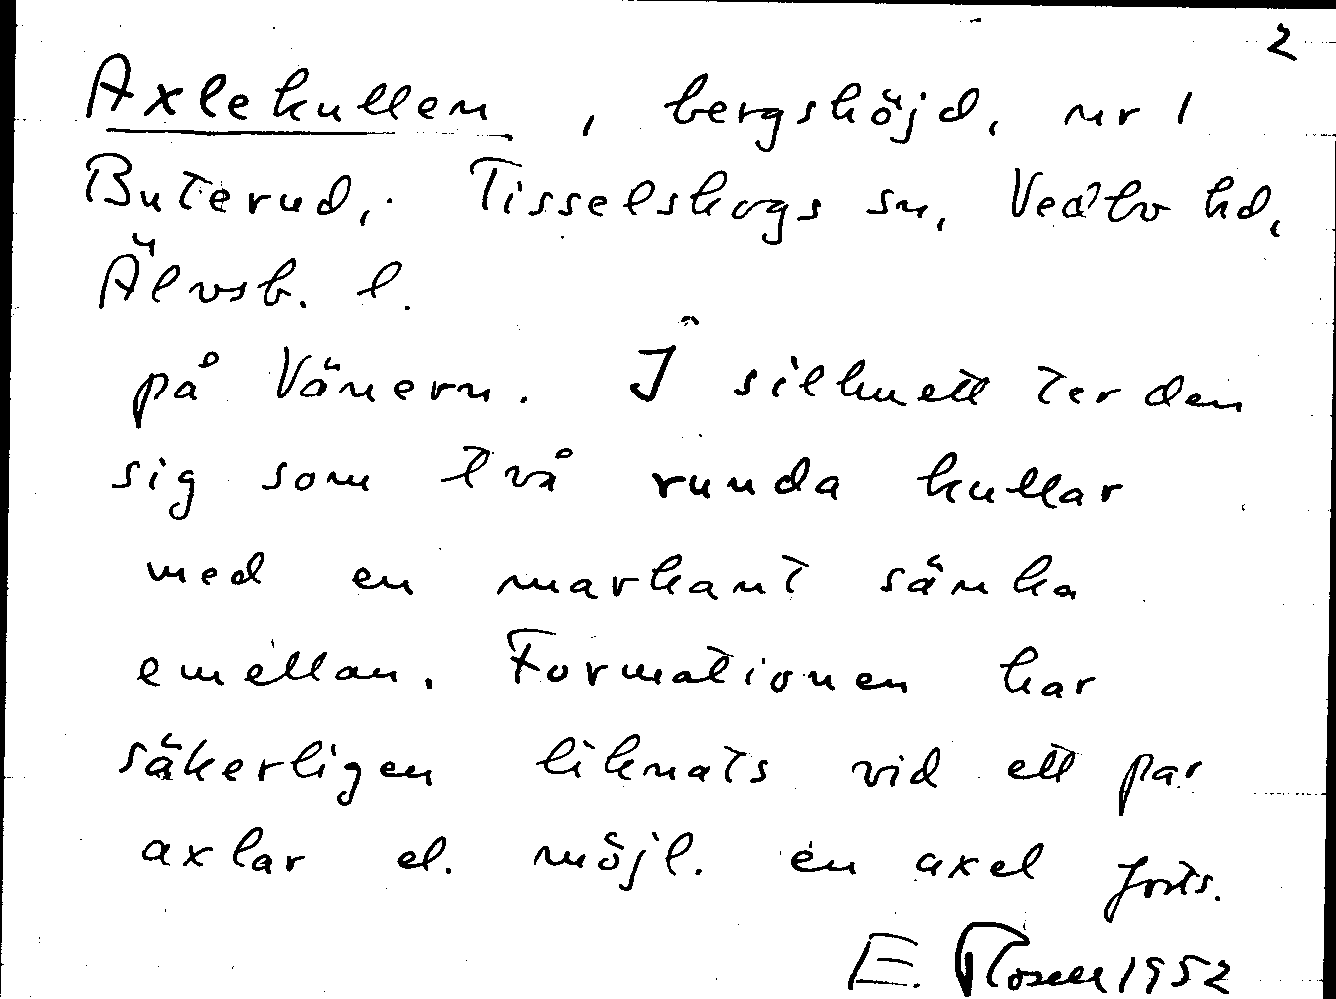 2
Axlekullen, bergshöjd, nr 1
Buterud, Tisselskogs sn, Vedbo hd,
Älvsb. l.
på Vänern. I silhuett ter den
sig som två runda kullar
med en markant sänka
emellan. Formationen har
säkerligen liknats vid ett par
axlar el. möjl. en axel forts.
E. Rosell 1952